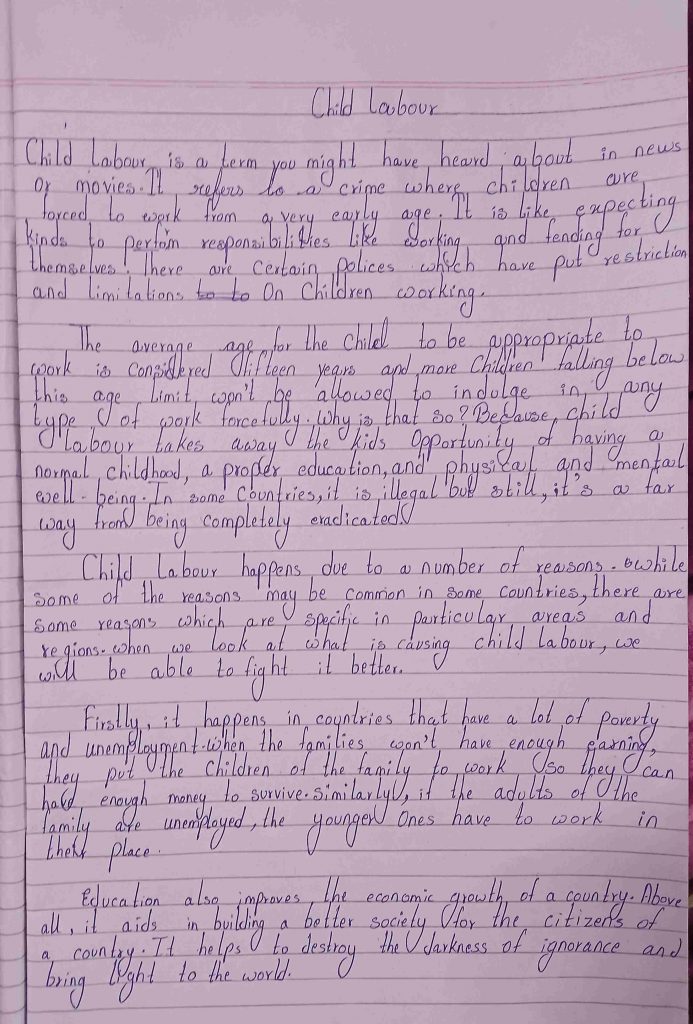 Child Labour
Child Labour is a term you might have heard about in news
or movies. It refers to a crime where children are
forced to work from a very early age. It is like expecting
kinds to perform responsibilities like working and fending for
themselves. There are certain polices which have put restriction
and limitations to to On Children working.
The average age for the Child to be appropriate to
work is considered fifteen years and more Children falling below
this age limit won't be allowed to indulge in any
type of work forcefully. Why is that so? Because, child
labour takes away the kids Opportunity of having a
normal childhood, a proper education, and physical and mental
well-being. In some Countries, it is illegal but still, it's a far
way from being completely eradicated
Child Labour happens due to a number of reasons. while
some of the reasons may be common in some countries, there are
some reasons which are specific in particular areas and
regions. when we look at what is causing child labour, we
will be able to fight it better.
Firstly, it happens in countries that have a lot of poverty
and unemployment. when the families won't have enough earning,
they put the Children of the family to work so they can
have enough money to survive. Similarly, if the adults of the
family are unemployed, the younger Ones have to work in
their place.
Education also improves the economic growth of a country. Above
all, it aids in building a better society for the citizens of
a country. It helps to destroy the darkness of ignorance and
bring light to the world.